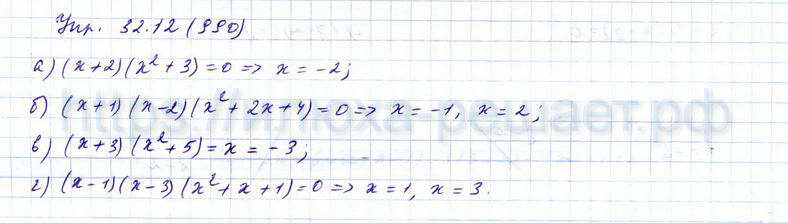 Упр. 32.12 (990)
а) (x+2)(x²+3)=0 => x = -2;
б) (x+1)(x-2)(x²+2x+4)=0 => x = -1, x = 2;
в) (x+3)(x²+5)= x = -3;
г) (x-1)(x-3)(x²+x+1)=0 => x = 1, x = 3.